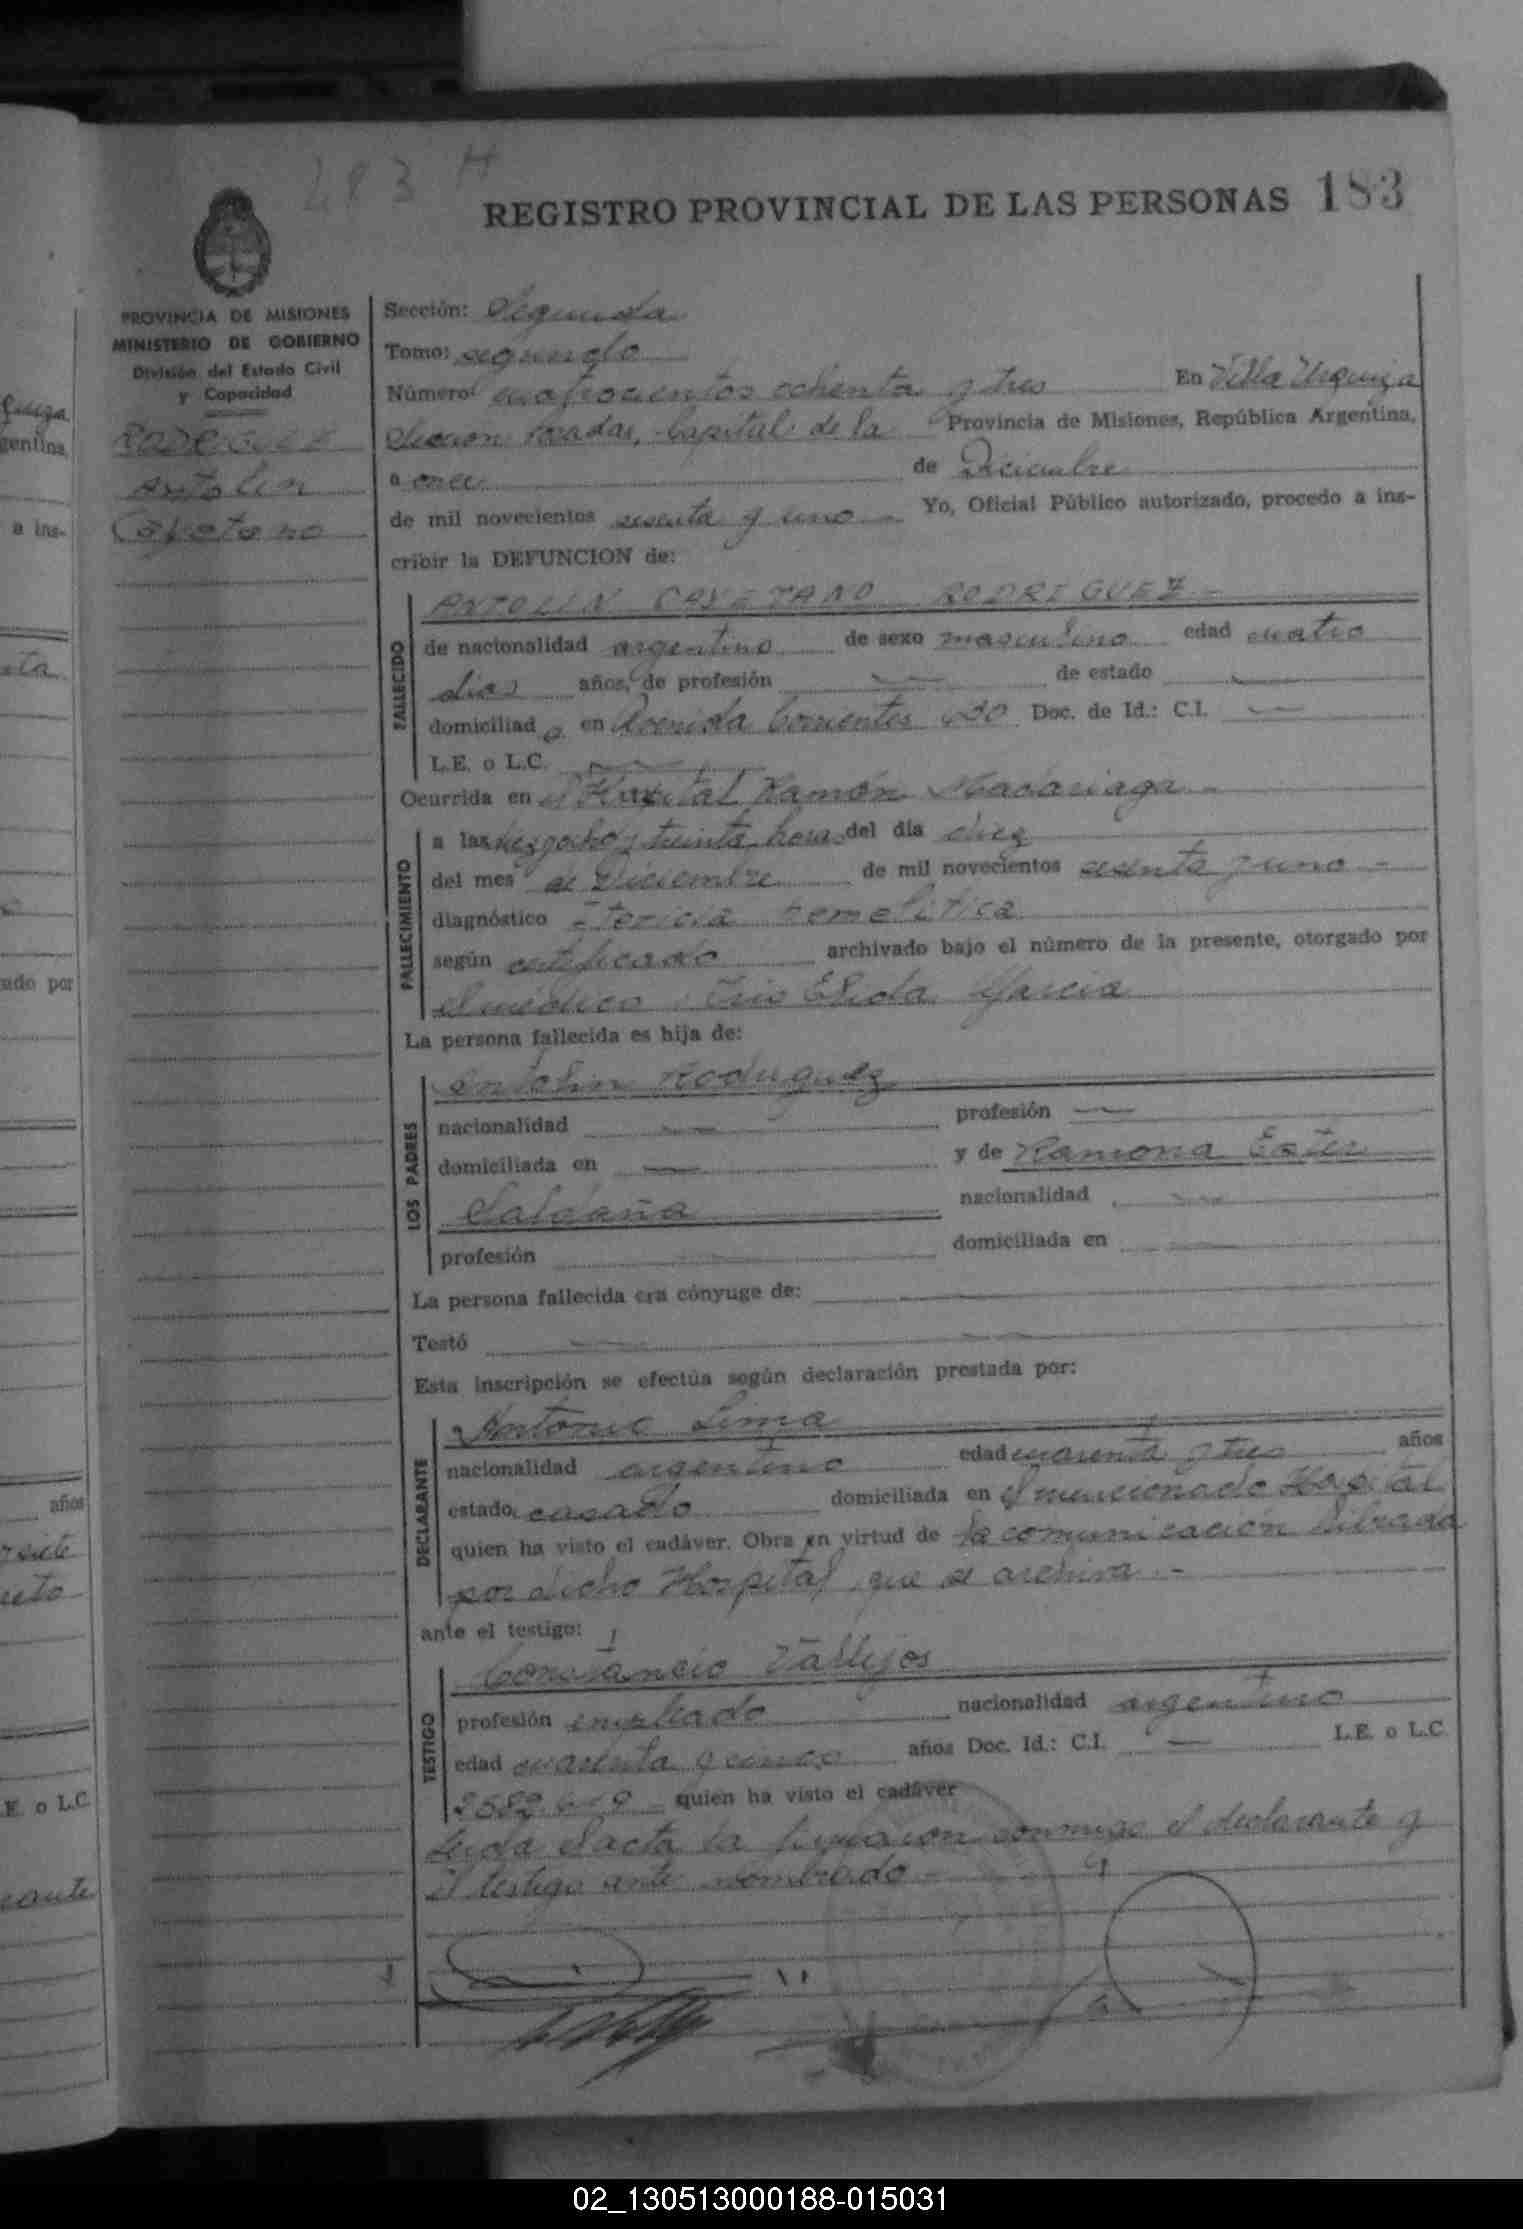 483 H
REGISTRO PROVINCIAL DE LAS PERSONAS 183
PROVINCIA DE MISIONES
MINISTERIO DE GOBIERNO
División del Estado Civil
y Capacidad
RODRIGUEZ
Antolin
Cayetano
Sección: Segunda
Tomo: segundo
Número cuatrocientos ochenta y tres En Villa Urquiza
Sección Posadas, Capital de la Provincia de Misiones, República Argentina,
a once de Diciembre
de mil novecientos sesenta y uno Yo, Oficial Público autorizado, procedo a ins-
cribir la DEFUNCION de:
ANTOLIN CAYETANO RODRIGUEZ
FALLECIDO
de nacionalidad argentino de sexo masculino edad cuatro
dias años, de profesión — de estado —
domiciliad o en Avenida Corrientes Doc. de Id.: C.I. —
L.E. o L.C. —
Ocurrida en el Hospital Ramón Madariaga
FALLECIMIENTO
a las diezyocho y treinta horas del día diez
del mes de Diciembre de mil novecientos sesenta y uno -
diagnóstico Ictericia hemolitica
según certificado archivado bajo el número de la presente, otorgado por
el médico García
La persona fallecida es hija de:
LOS PADRES
Antolin Rodriguez
nacionalidad — profesión —
domiciliada en — y de Ramona Ester
Saldaña nacionalidad —
profesión — domiciliada en —
La persona fallecida era cónyuge de:
Testó —
Esta inscripción se efectúa según declaración prestada por:
DECLARANTE
Antonio Lima
nacionalidad argentino edad cuarenta y tres años
estado casado domiciliada en el mencionado Hospital
quien ha visto el cadáver. Obra en virtud de la comunicación librada
por dicho Hospital, que se archiva. -
ante el testigo:
TESTIGO
Constancio Vallejos
profesión empleado nacionalidad argentino
edad cuarenta y cinco años Doc. Id.: C.I. — L.E. o L.C.
quien ha visto el cadáver
Leida el acta la firmaron conmigo el declarante y
el testigo ante nombrado -
quiza
gentina,
a ins-
ado por
años
y siete
E. o L.C.
02_130513000188-015031